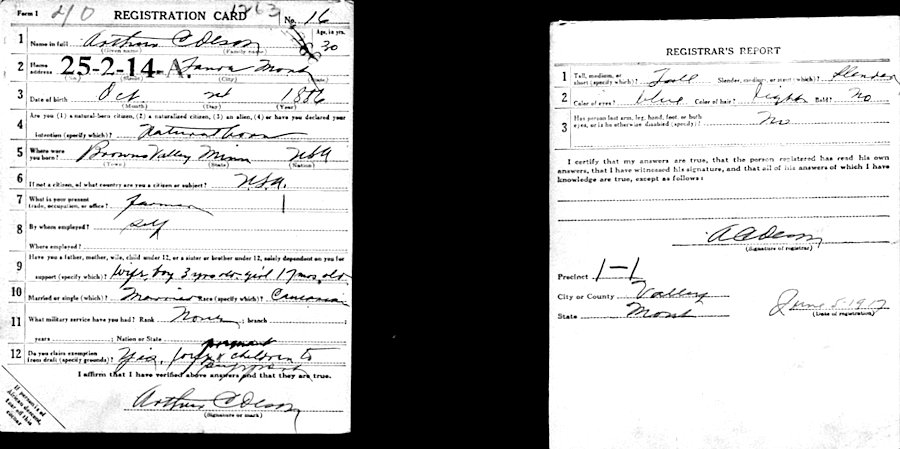 Form 1 210 REGISTRATION CARD 1263 No. 16
1 Name in full Arthur C Olson Age, in yrs. 30
(Given name) (Family name)
2 Home address 25-2-14-A. Mont
(No.) (Street) (City) (State)
3 Date of birth Oct 1886
(Month) (Day) (Year)
4 Are you (1) a natural-born citizen, (2) a naturalized citizen, (3) an alien, (4) or have you declared your
intention (specify which)? Natural born
5 Where were you born? Browns Valley Minn USA
(Town) (State) (Nation)
6 If not a citizen, of what country are you a citizen or subject? USA.
7 What is your present trade, occupation, or office? farmer 1
8 By whom employed? self
Where employed?
9 Have you a father, mother, wife, child under 12, or a sister or brother under 12, solely dependent on you for
support (specify which)? Wife, boy 3 yrs old, girl 17 mos. old
10 Married or single (which)? Married Race (specify which)? Caucasian
11 What military service have you had? Rank None ; branch ;
years ; Nation or State
12 Do you claim exemption from draft (specify grounds)? Yes, children to
support
I affirm that I have verified above answers and that they are true.
Arthur C Olson
(Signature or mark)
If person is of African descent, tear off this corner
REGISTRAR'S REPORT
1 Tall, medium, or short (specify which)? Tall Slender, medium, or stout (which)? Slender
2 Color of eyes? blue Color of hair? light Bald? No
3 Has person lost arm, leg, hand, foot, or both eyes, or is he otherwise disabled (specify)? No
I certify that my answers are true, that the person registered has read his own
answers, that I have witnessed his signature, and that all of his answers of which I have
knowledge are true, except as follows:
(Signature of registrar)
Precinct 1-1
City or County Valley
State Mont
June 5-1917
(Date of registration)